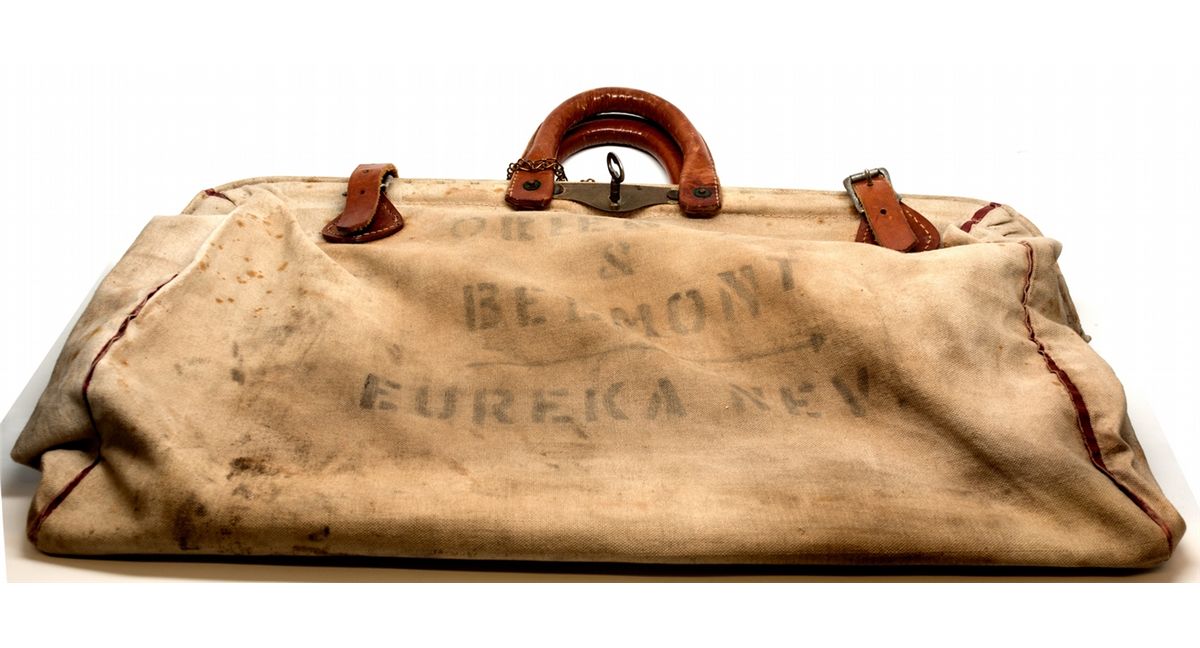 &
BELMONT
EUREKA NEV